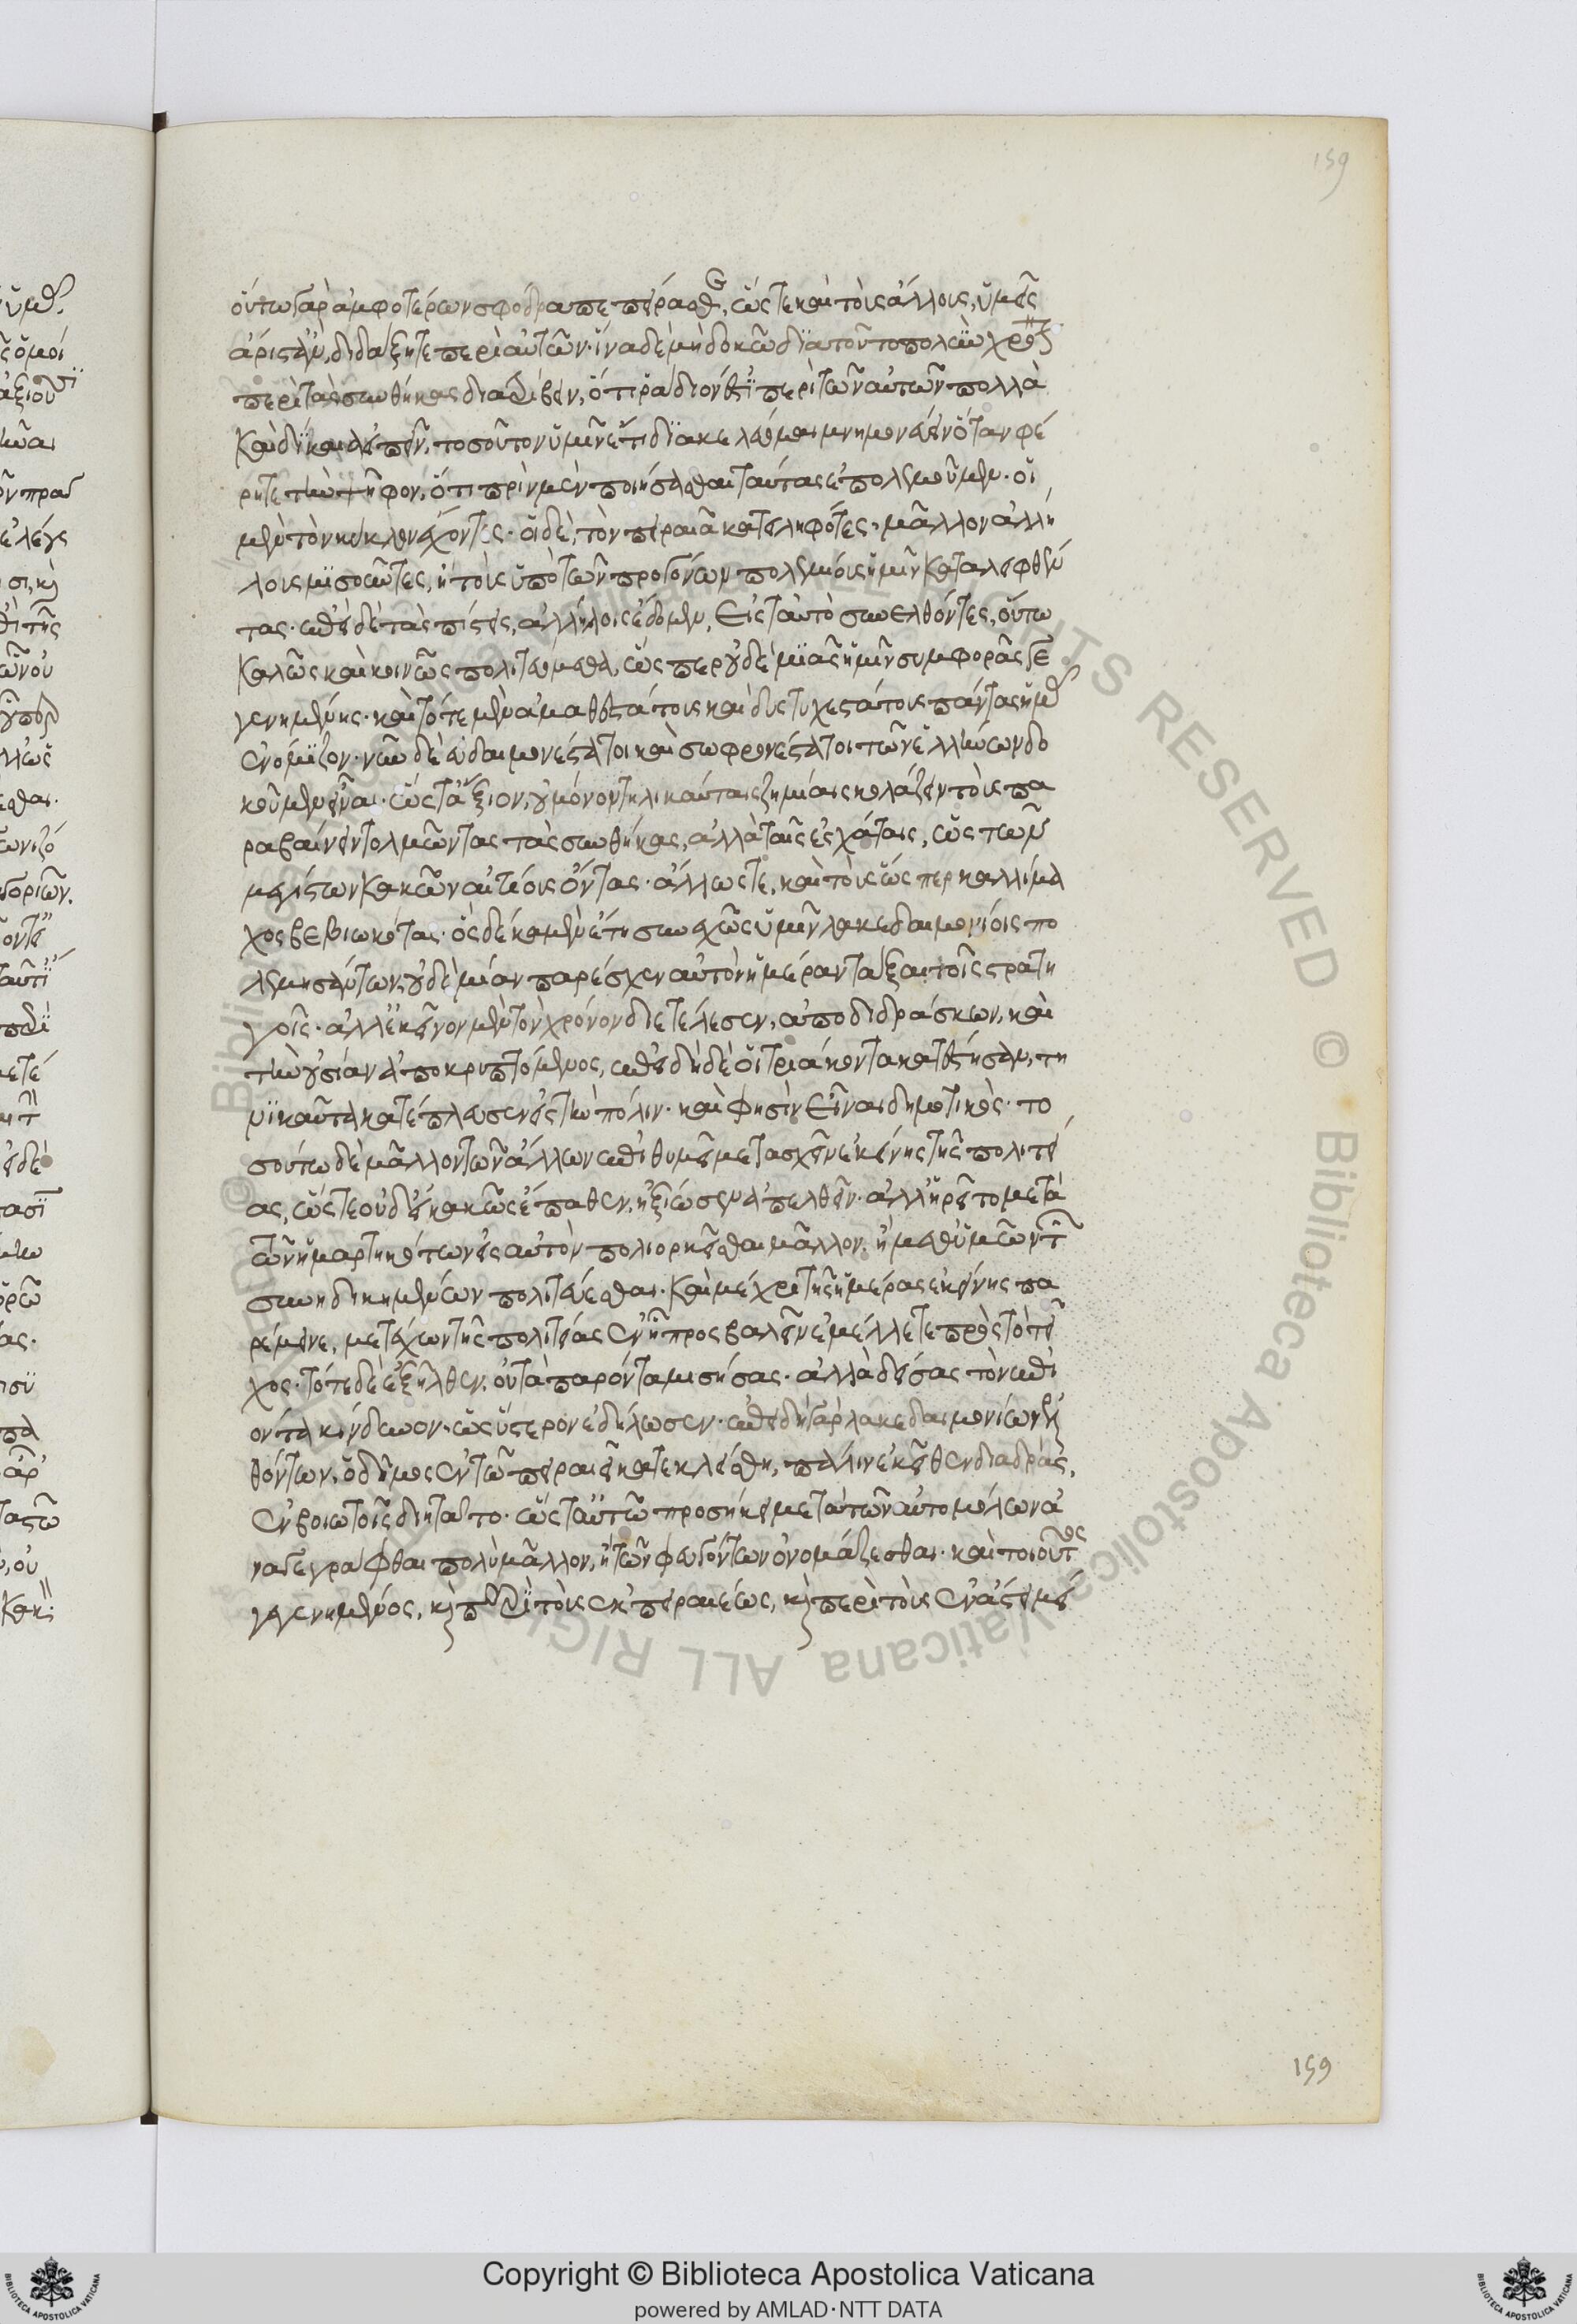 οὕτω γὰρ ἀμφοτέρων σφόδρα πεπείρασθε, ὥστε καὶ τοῖς ἄλλοις, ὑμεῖς
ἄριστ' ἂν, διδάξητε περὶ αὐτῶν. ἵνα δὲ μὴ δοκῶ διὰ τοῦτο πολὺν χρόνον
περὶ τὰς συνθήκας διατρίβειν, ὅτι ῥάδιόν ἐστι περὶ τῶν αὐτῶν πολλὰ
καὶ δίκαια εἰπεῖν, τοσοῦτον ὑμῖν ἔτι διακελεύομαι μνημονεύειν ὅταν φέ
ρητε τὴν ψῆφον, ὅτι πρὶν μὲν ποιήσασθαι ταύτας ἐπολεμοῦμεν. οἱ
μὲν τὸν κύκλον ἔχοντες. οἱ δὲ, τὸν πειραιᾶ κατειληφότες, μᾶλλον ἀλλή
λους μισοῦντες, ἢ τοὺς ὑπὸ τῶν προγόνων πολεμίους ἡμῖν καταλειφθέν
τας. ἐπεὶ δὲ τὰς πίστεις, ἀλλήλοις ἔδομεν, εἰς ταὐτὸ συνελθόντες, οὕτω
καλῶς καὶ κοινῶς πολιτευόμεθα, ὥσπερ οὐδὲ μιᾶς ἡμῖν συμφορᾶς γε
γενημένης. καὶ τότε μὲν ἀμαθεστάτους καὶ δυστυχεστάτους πάντας ἡμᾶς
ἐνόμιζον. νῦν δὲ εὐδαιμονέστατοι καὶ σωφρονέστατοι τῶν ἑλλήνων δο
κοῦμεν εἶναι. ὥστ' ἄξιον, οὐ μόνον τηλικαύταις ζημίαις κολάζειν τοὺς πα
ραβαίνειν τολμῶντας τὰς συνθήκας, ἀλλὰ ταῖς ἐσχάταις, ὡς τῶν
μεγίστων κακῶν αἰτίους ὄντας. ἄλλως τε, καὶ τοὺς ὥσπερ καλλίμα
χος βεβιωκότας. ὃς δέκα μὲν ἔτη συνεχῶς ὑμῖν λακεδαιμονίοις πο
λεμησάντων, οὐδὲ μίαν παρέσχεν αὑτὸν ἡμέραν τάξαι τοῖς στρατη
γοῖς. ἀλλ' ἐκεῖνον μὲν τὸν χρόνον διετέλεσεν, ἀποδιδράσκων, καὶ
τὴν οὐσίαν ἀποκρυπτόμενος, ἐπειδὴ δὲ οἱ τριάκοντα κατέστησαν, τη
νικαῦτα κατέπλευσεν εἰς τὴν πόλιν. καὶ φησὶν εἶναι δημοτικός. το
σούτω δὲ μᾶλλον τῶν ἄλλων ἐπεθύμει μετασχεῖν ἐκείνης τῆς πολιτεί
ας, ὥστε οὐδ' εἰ κακῶς ἔπαθεν, ἠξίωσεν ἀπελθεῖν. ἀλλ' ᾑρεῖτο μετὰ
τῶν ἡμαρτηκότων εἰς αὐτὸν πολιορκεῖσθαι μᾶλλον, ἢ μεθ' ὑμῶν τῶν
συνηδικημένων πολιτεύεσθαι. καὶ μέχρι τῆς ἡμέρας ἐκείνης πα
ρέμεινε, μετέχων τῆς πολιτείας ἐν ᾗ προσβαλεῖν ἐμέλλετε πρὸς τὸ τεῖ
χος. τότε δὲ ἐξῆλθεν, οὐ τὰ παρόντα μισήσας. ἀλλὰ δείσας τὸν ἐπι
όντα κίνδυνον. ὡς ὕστερον ἐδήλωσεν. ἐπειδὴ γὰρ λακεδαιμονίων ἐλ
θόντων, ὁ δῆμος ἐν τῷ πειραιεῖ κατεκλείσθη, πάλιν ἐκεῖθεν διαδράς,
ἐν βοιωτοῖς διῃτᾶτο. ὥστ' αὐτῷ προσήκει μετὰ τῶν αὐτομόλων ἀ
ναγεγράφθαι πολὺ μᾶλλον, ἢ τῶν φευγόντων ὀνομάζεσθαι. καὶ τοιοῦτος
γεγενημένος, καὶ περὶ τοὺς ἐκ πειραιέως, καὶ περὶ τοὺς ἐν ἄστει μεί
159
159
Copyright © Biblioteca Apostolica Vaticana
powered by AMLAD·NTT DATA